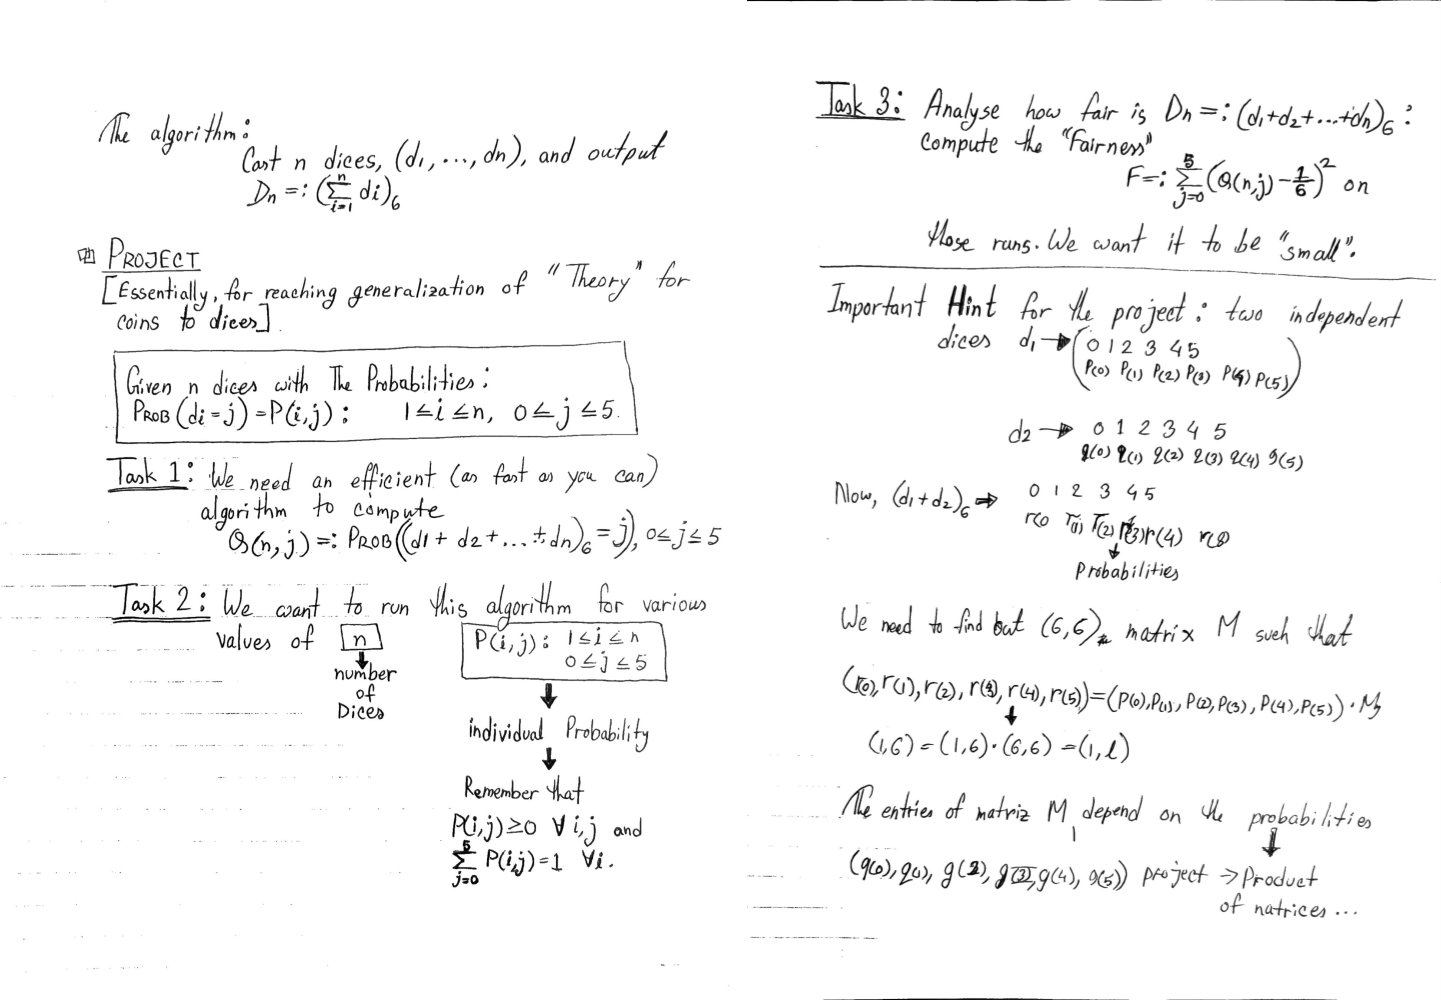 The algorithm:
Cast n dices, (d1, ..., dn), and output
Dn =: (∑ i=1 n di)6
PROJECT
[Essentially, for reaching generalization of "Theory" for
coins to dices].
Given n dices with The Probabilities:
PROB (di = j) = P(i,j): 1 ≤ i ≤ n, 0 ≤ j ≤ 5.
Task 1: We need an efficient (as fast as you can)
algorithm to compute
Q(n,j) =: PROB((d1 + d2 + ... + dn)6 = j), 0 ≤ j ≤ 5
Task 2: We want to run this algorithm for various
values of n
P(i,j): 1 ≤ i ≤ n
0 ≤ j ≤ 5
number
of
Dices
individual Probability
Remember that
P(i,j) ≥ 0 ∀ i,j and
∑ j=0 5 P(i,j) = 1 ∀i.
Task 3: Analyse how fair is Dn =: (d1+d2+...+dn)6:
compute the "Fairness"
F =: ∑ j=0 5 (Q(n,j) - 1/6)2 on
those runs. We want it to be "small".
Important Hint for the project: two independent
dices d1 → (0 1 2 3 4 5
P(0) P(1) P(2) P(3) P(4) P(5))
d2 → 0 1 2 3 4 5
q(0) q(1) q(2) q(3) q(4) q(5)
Now, (d1+d2)6 ⇒ 0 1 2 3 4 5
r(0 r(1) r(2) r(3) r(4) r(5)
Probabilities
We need to find out (6,6) matrix M such that
(r(0), r(1), r(2), r(3), r(4), r(5)) = (P(0), P(1), P(2), P(3), P(4), P(5)) · M
(1,6) = (1,6) · (6,6) = (1,6)
The entries of matriz M depend on the probabilities
(q(0), q(1), q(2), q(3), q(4), q(5)) project → Product
of matrices ...